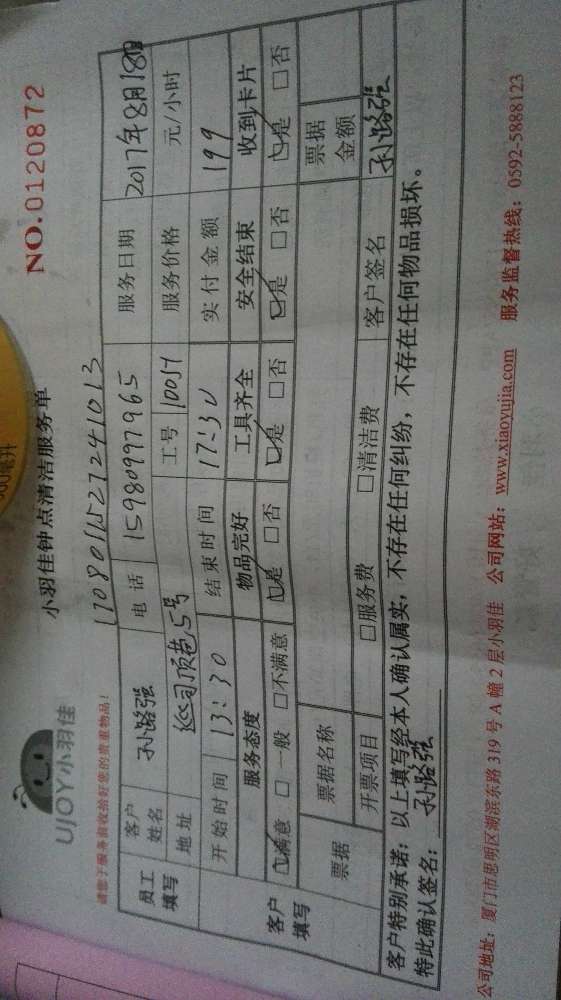 UJOY小羽佳
小羽佳钟点清洁服务单
NO.0120872
请您于服务前收拾好您的贵重物品！
员工填写 客户姓名 孙路强 电话 15980997965 服务日期 2017年8月18日
地址 工号 10051 服务价格 元/小时
开始时间 13:30 结束时间 17:30 实付金额 199
客户填写 服务态度 物品完好 工具齐全 安全结束 收到卡片
☑满意 □一般 □不满意 ☑是 □否 ☑是 □否 ☑是 □否 ☑是 □否
票据 票据名称 票据金额
开票项目 □服务费 □清洁费 客户签名 孙路强
客户特别承诺：以上填写经本人确认属实，不存在任何纠纷，不存在任何物品损坏。
特此确认签名：孙路强
公司地址：厦门市思明区湖滨东路319号A幢2层小羽佳 公司网站：www.xiaoyujia.com 服务监督热线：0592-5888123